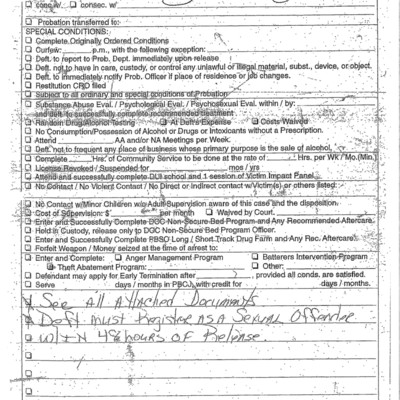 ☐ conc. w/. ☐ consec. w/
☐ Probation transferred to:
SPECIAL CONDITIONS:
☐ Complete Originally Ordered Conditions
☐ Curfew: p.m., with the following exception:
☐ Deft. to report to Prob. Dept. immediately upon release
☐ Deft. not to have in care, custody, or control any unlawful or illegal material, subst., device, or object.
☐ Deft. to immediately notify Prob. Officer if place of residence or job changes.
☐ Restitution CRO filed
☐ Subject to all ordinary and special conditions of Probation
☐ Substance Abuse Eval. / Psychological Eval. / Psychosexual Eval. within / by:
and deft. to successfully complete recommended treatment
☐ Random Drug/Alcohol Testing ☐ At Deft's Expense ☐ Costs Waived
☐ No Consumption/Possession of Alcohol or Drugs or Intoxicants without a Prescription.
☐ Attend AA and/or NA Meetings per Week.
☐ Deft. not to frequent any place of business whose primary purpose is the sale of alcohol.
☐ Complete Hrs. of Community Service to be done at the rate of Hrs. per Wk./Mo.(Min.)
☐ License Revoked / Suspended for mos / yrs
☐ Attend and successfully complete DUI school and 1 session of Victim Impact Panel.
☐ No Contact / No Violent Contact / No Direct or Indirect contact w/Victim(s) or others listed:
☐ No Contact w/Minor Children w/o Adult Supervision aware of this case and the disposition
☐ Cost of Supervision: $ per month ☐ Waived by Court
☐ Enter and Successfully Complete DOC Non-Secure Bed Program and Any Recommended Aftercare.
☐ Held in Custody, release only to DOC Non-Secure Bed Program Officer.
☐ Enter and Successfully Complete PBSO Long / Short Track Drug Farm and Any Rec. Aftercare.
☐ Forfeit Weapon / Money seized at the time of arrest to:
☐ Enter and Complete: ☐ Anger Management Program ☐ Batterers Intervention Program
☐ Theft Abatement Program: ☐ Other:
☐ Defendant may qualify for Early Termination after , provided all conds. are satisfied.
☐ Serve days / months in PBCJ, with credit for days / months.
See All Attached Documents
Deft must Register as a Sexual Offender
W/IN 48 hours of Release.